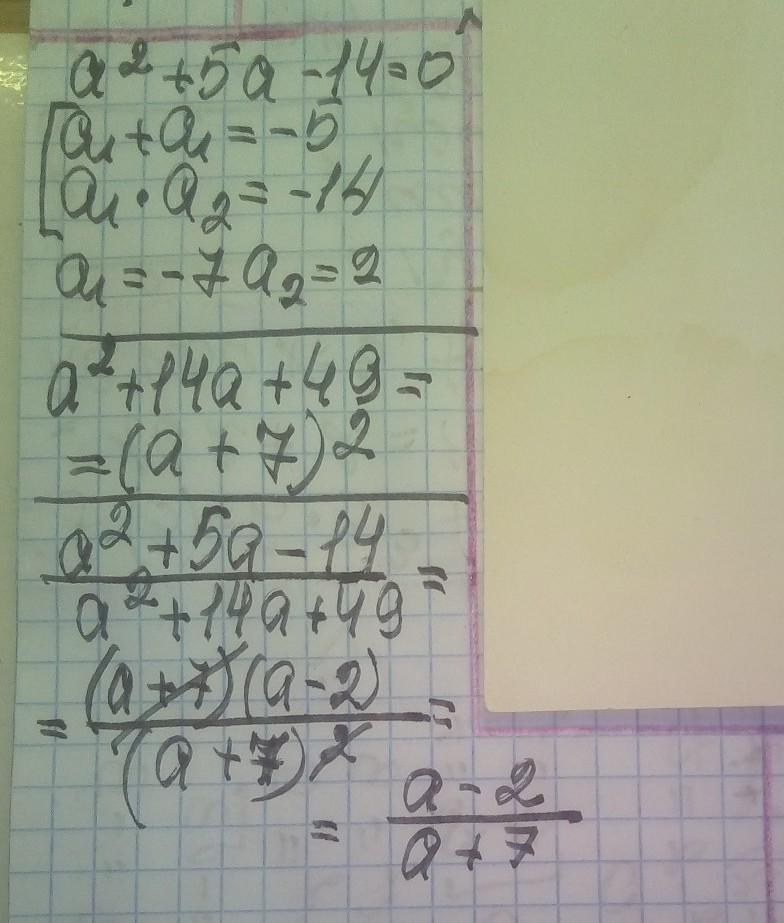 a² + 5a - 14 = 0
a₁ + a₁ = -5
a₁ · a₂ = -14
a₁ = -7 a₂ = 2
a² + 14a + 49 =
= (a + 7)²
a² + 5a - 14 =
a² + 14a + 49
= (a + 7)(a - 2) =
(a + 7)²
= a - 2
a + 7